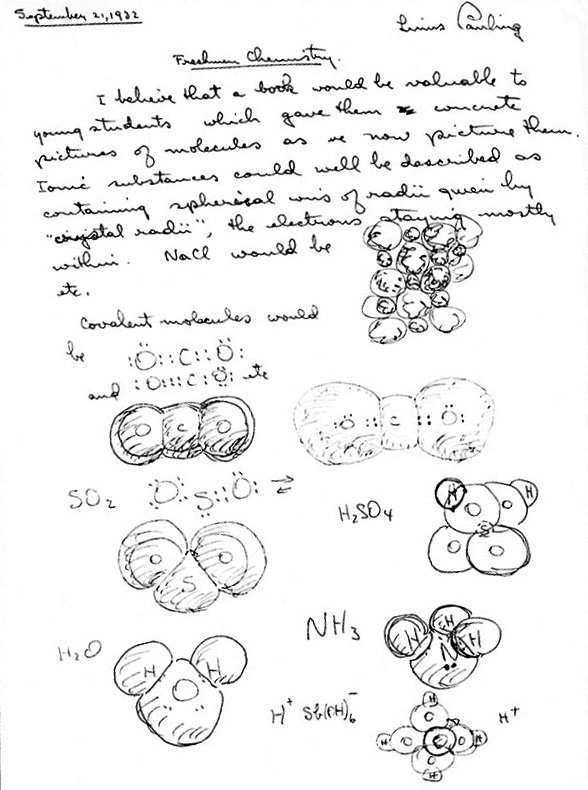 September 21, 1932
Linus Pauling
Freshman Chemistry.
I believe that a book would be valuable to
young students which gave them concrete
pictures of molecules as we now picture them.
Ionic substances could well be described as
containing spherical ions of radii given by
"crystal radii", the electrons staying mostly
within. NaCl would be
etc.
Covalent molecules would
be :Ö::C::Ö:
and :O:::C:Ö: etc
O C O
:O::C::O:
SO2 :O:S::O: ⇌
H2SO4
H H O O S O O
O S O
NH3
H H H N
H2O
H H O
H+ Sb(OH)6−
H O H O O O H O H
H+